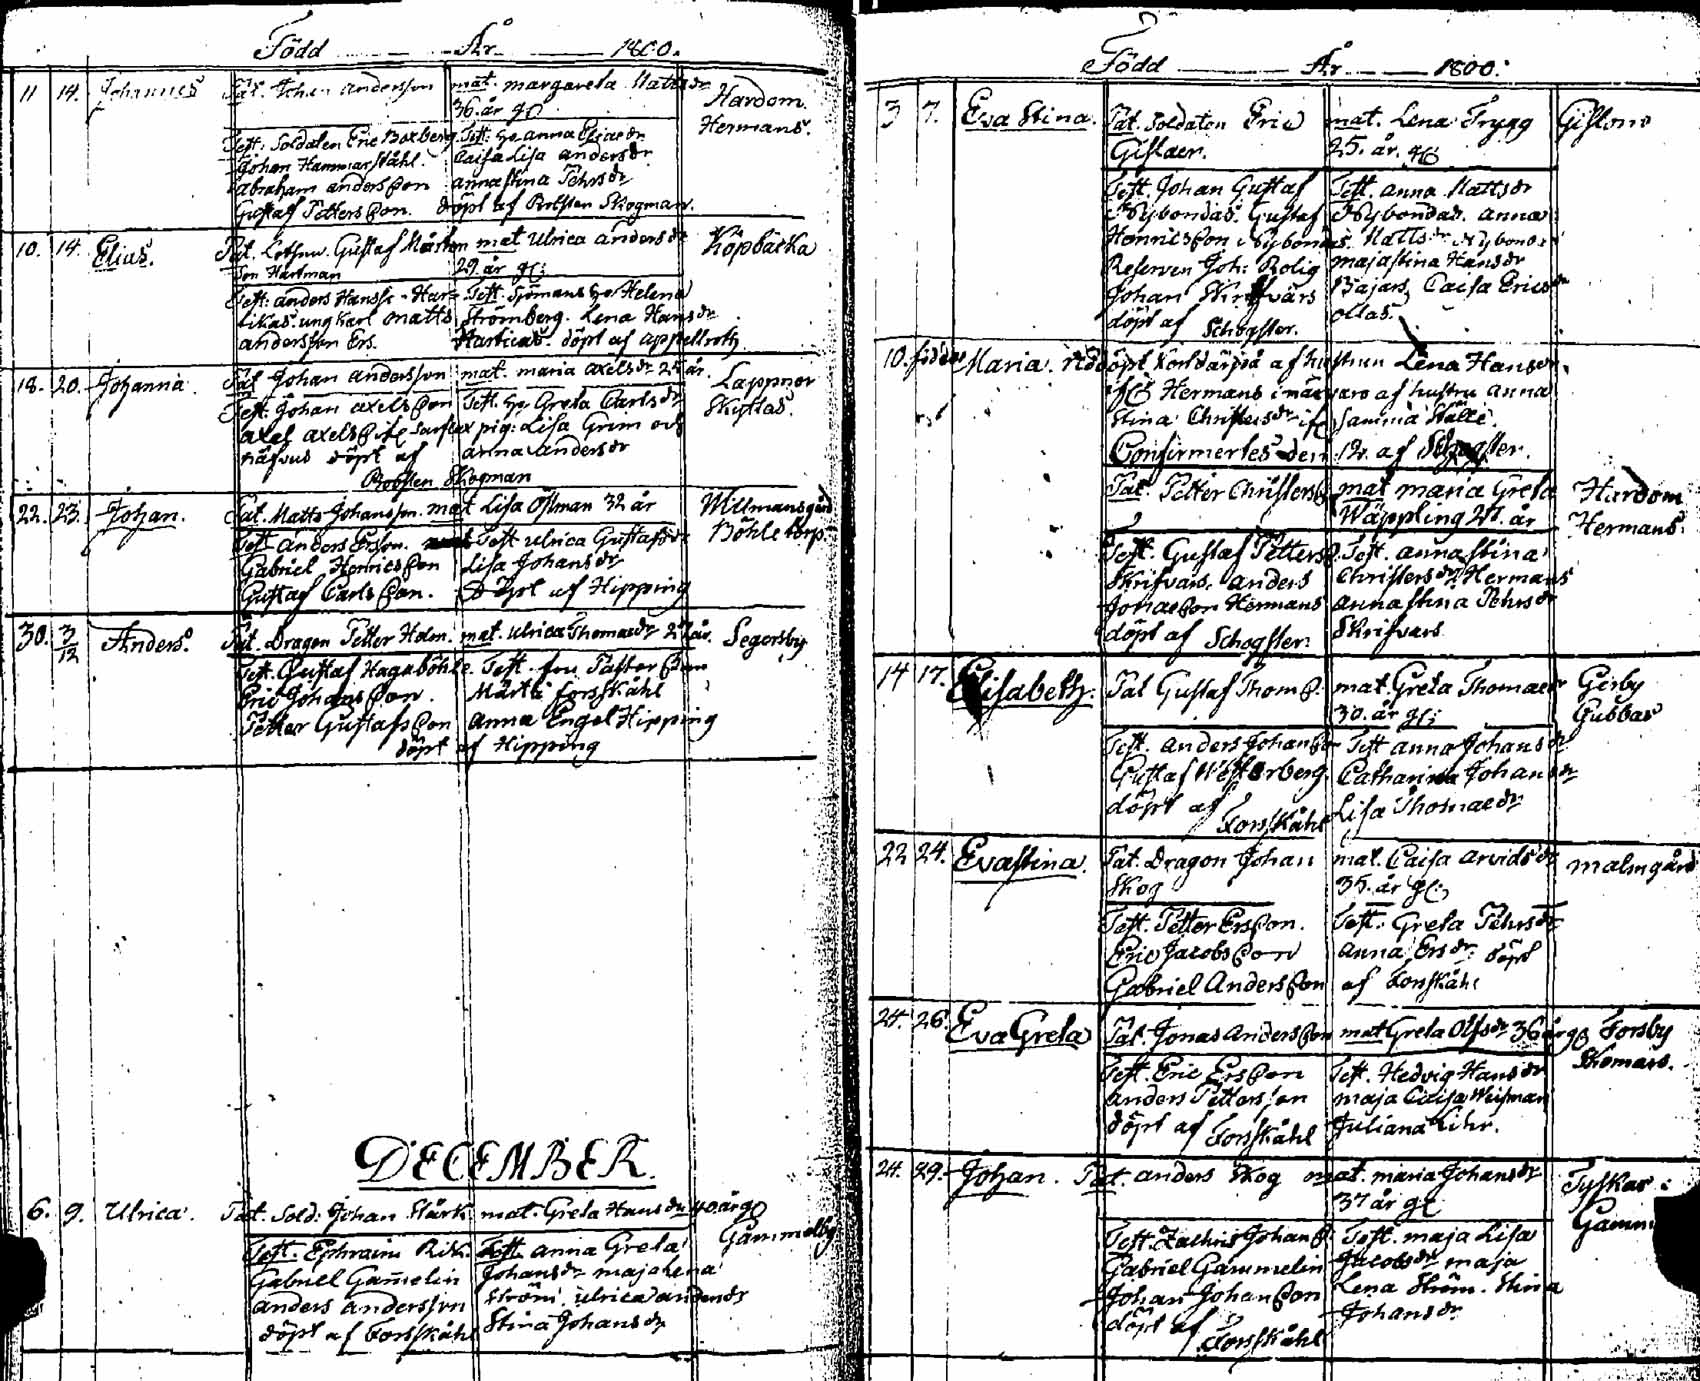 Född År 1800.
11 14. Johannes Pat. Johan Andersson mat. margareta Mattsdr Hardom
36. år gl Hermans.
Test. Soldaten Eric Boxberg Test: hu anna Eliaedr
Johan Hammarståhl. Caisa Lisa andersdr
abraham andersson annastina Pehrsdr
Gustaf Pettersson. döpt af Rotsten Skogman.
10. 14. Elias. Pat. Gustaf Mårten mat Ulrica andersdr Köpbacka
son Hartman 29. år gl:
Test: anders Hansso Har= Test. Sjömans hu Helena
likas. ung karl matts Strömberg. Lena Hansdr
andersson Ers. döpt af appellroth
18. 20. Johanna. Pat Johan andersson mat. maria axelsdr 25 år. Lappnor
Test. Johan axelsson Test. hu Greta Carlsdr Skyttas.
axel axels pig: Lisa Grim och
näfvus döpt af anna andersdr
Skogman
22. 23. Johan. Pat. Matts Johansson. mat Lisa Ostman 32 år Willmansgård
Test Anders Ersson. Test ulrica Gustafsdr Böhle torp.
Gabriel Henricsson Lisa Johansdr
Gustaf Carlsson. Döpt af Hipping
30. 3/12 Anders. Pat. Dragon Petter Holm. mat. ulrica Thomaedr 27 år. Segersby
Test. Gustaf Hagaböhle Test. fru Pastorskan
Eric Johansson. Märta forsskåhl
Petter Gustafsson anna Engel Hipping
döpt af Hipping
DECEMBER.
6. 9. Ulrica. Pat. Sold: Johan Stårk mat. Greta Hansdr 40 år gl
Gammelby
Test. Ephraim Rik. Test. anna Greta
Gabriel Gamelin Johansdr maja Lena
anders andersson Ström. ulrica andersdr
döpt af Forsskåhl Stina Johansdr
Född År 1800.
3 7. Eva Stina. Pat. Soldaten Eric mat. Lena Trygg Gislom
Gislaer. 25. år. gl:
Test. Johan Gustaf Test. anna Mattsdr
Nybondas. Gustaf Nybondas. anna
Henricsson Nybondas. Mattsdr Nybondas
Reserven Joh: Rolig majastina Hansdr
Johan Skrifvars Bajars, Caisa Ericsdr
döpt af Schogster. ollas.
10. Maria. Nöddöpt af hustrun Lena Hansdr.
Hermans i närvaro af hustru anna
Stina Christersdr samma ställe.
Confirmertes den 12. af Schogster.
Pat. Petter Christerss mat maria Greta Hardom
Wäppling 21. år Hermans.
Test. Gustaf Petterss Test. anna stina
Skrifvars. anders Christersdr Hermans
Jonasson Hermans annastina Pehrsdr
döpt af Schogster. Skrifvars
14 17. Elisabeth. Pat Gustaf Thoms. mat. Greta Thomaedr Gerby
30. år gl: Gubbas
Test. anders Johansso Test anna Johansdr
Gustaf Westerberg Catharina Johansdr
döpt af Lisa Thomaedr
Forsskåhl
22 24. Evastina. Pat. Dragon Johan mat. Caisa arvidsdr malmgård
Skog 35. år gl.
Test. Petter Ersson. Test. Greta Pehrsdr
Eric Jacobsson anna Ersdr döpt
Gabriel Andersson af Forsskåhl
24. 26. Eva Greta Pat. Jonas andersson mat Greta Olfsdr 36 år gl Forsby
Thomars.
Test. Eric Ersson Test. Hedvig Hansdr
anders Pettersson maja Caisa Weisman
döpt af Forsskåhl Juliana Lihr.
24. 29. Johan. Pat. anders Skog mat. maria Johansdr Tyskas i
37 år gl Gamm
Test. Zachris Johans Test. maja Lisa
Gabriel Gammelin Jacobsdr maja
Johan Johansson Lena Ström. Stina
döpt af Johansdr
Forsskåhl